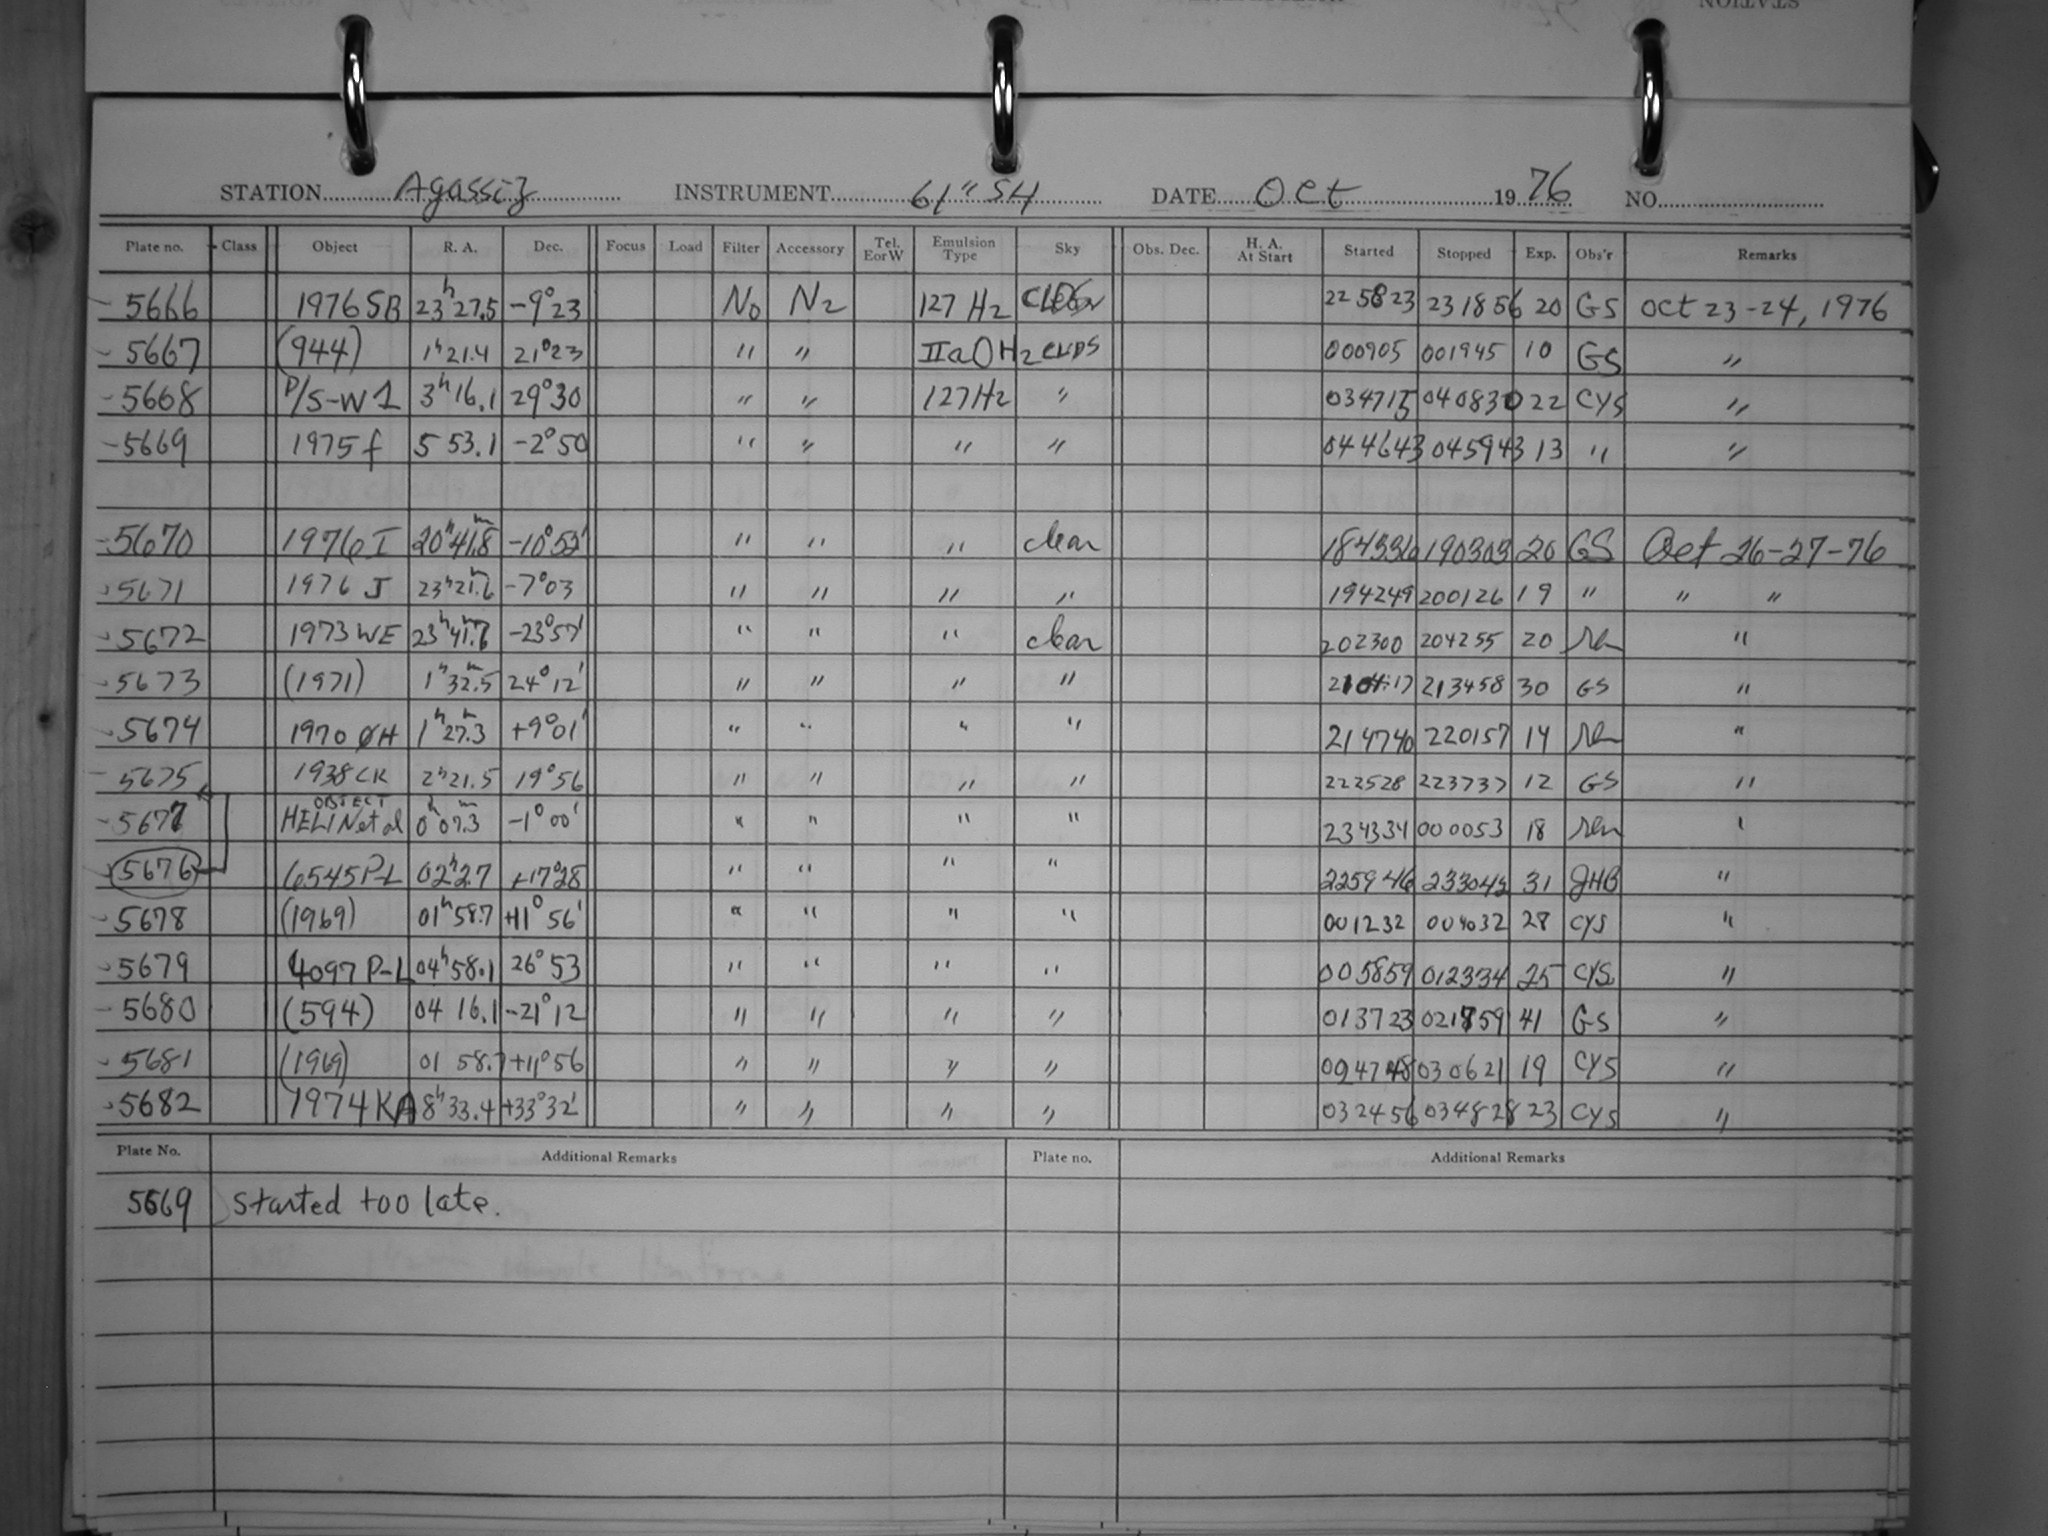 STATION Agassiz INSTRUMENT 61" SH DATE Oct 1976 NO.
Plate no. Class Object R. A. Dec. Focus Load Filter Accessory Tel. E or W Emulsion Type Sky Obs. Dec. H. A. At Start Started Stopped Exp. Obs'r Remarks
5666 1976 SB 23h 27.5 -9°23 No N2 127 H2 225823 231856 20 GS Oct 23-24, 1976
5667 (944) 1h 21.4 21°23 " " IIaO H2 CLDS 000905 001945 10 GS "
5668 P/S-W 1 3h 16.1 29°30 " " 127 H2 " 034715 040830 22 CYS "
5669 1975 f 5 53.1 -2°50 " " " " 044643 045943 13 " "
5670 1976 I 20h 41.8m -10°53' " " " clear 190303 20 GS Oct 26-27-76
5671 1976 J 23h 21.6m -7°03 " " " " 194249 200126 19 " " "
5672 1973 WE 23h 41.7m -23°57' " " " clear 202300 204255 20 "
5673 (1971) 1h 32.5m 24°12' " " " " 213458 30 GS "
5674 1970 ØH 1h 27.3m +9°01' " " " " 214740 220157 14 "
5675 1938 CK 2h 21.5 19°56 " " " " 222528 223737 12 GS "
5677 OBJECT HELIN et al 0h 07.3m -1°00' " " " " 234334 000053 18 "
5676 6545 P-L 02h 22.7 +17°28 " " " " 225946 31 JHB "
5678 (1969) 01h 58.7 +11°56' " " " " 001232 004032 28 CYS "
5679 4097 P-L 04h 58.1 26°53 " " " " 005859 012334 25 CYS "
5680 (594) 04 16.1 -21°12 " " " " 013723 021859 41 GS "
5681 (1969) 01 58.7 +11°56 " " " " 030621 19 CYS "
5682 1974 KA 8h 33.4 +33°32' " " " " 032456 034828 23 CYS "
Plate No. Additional Remarks Plate no. Additional Remarks
5669 Started too late.